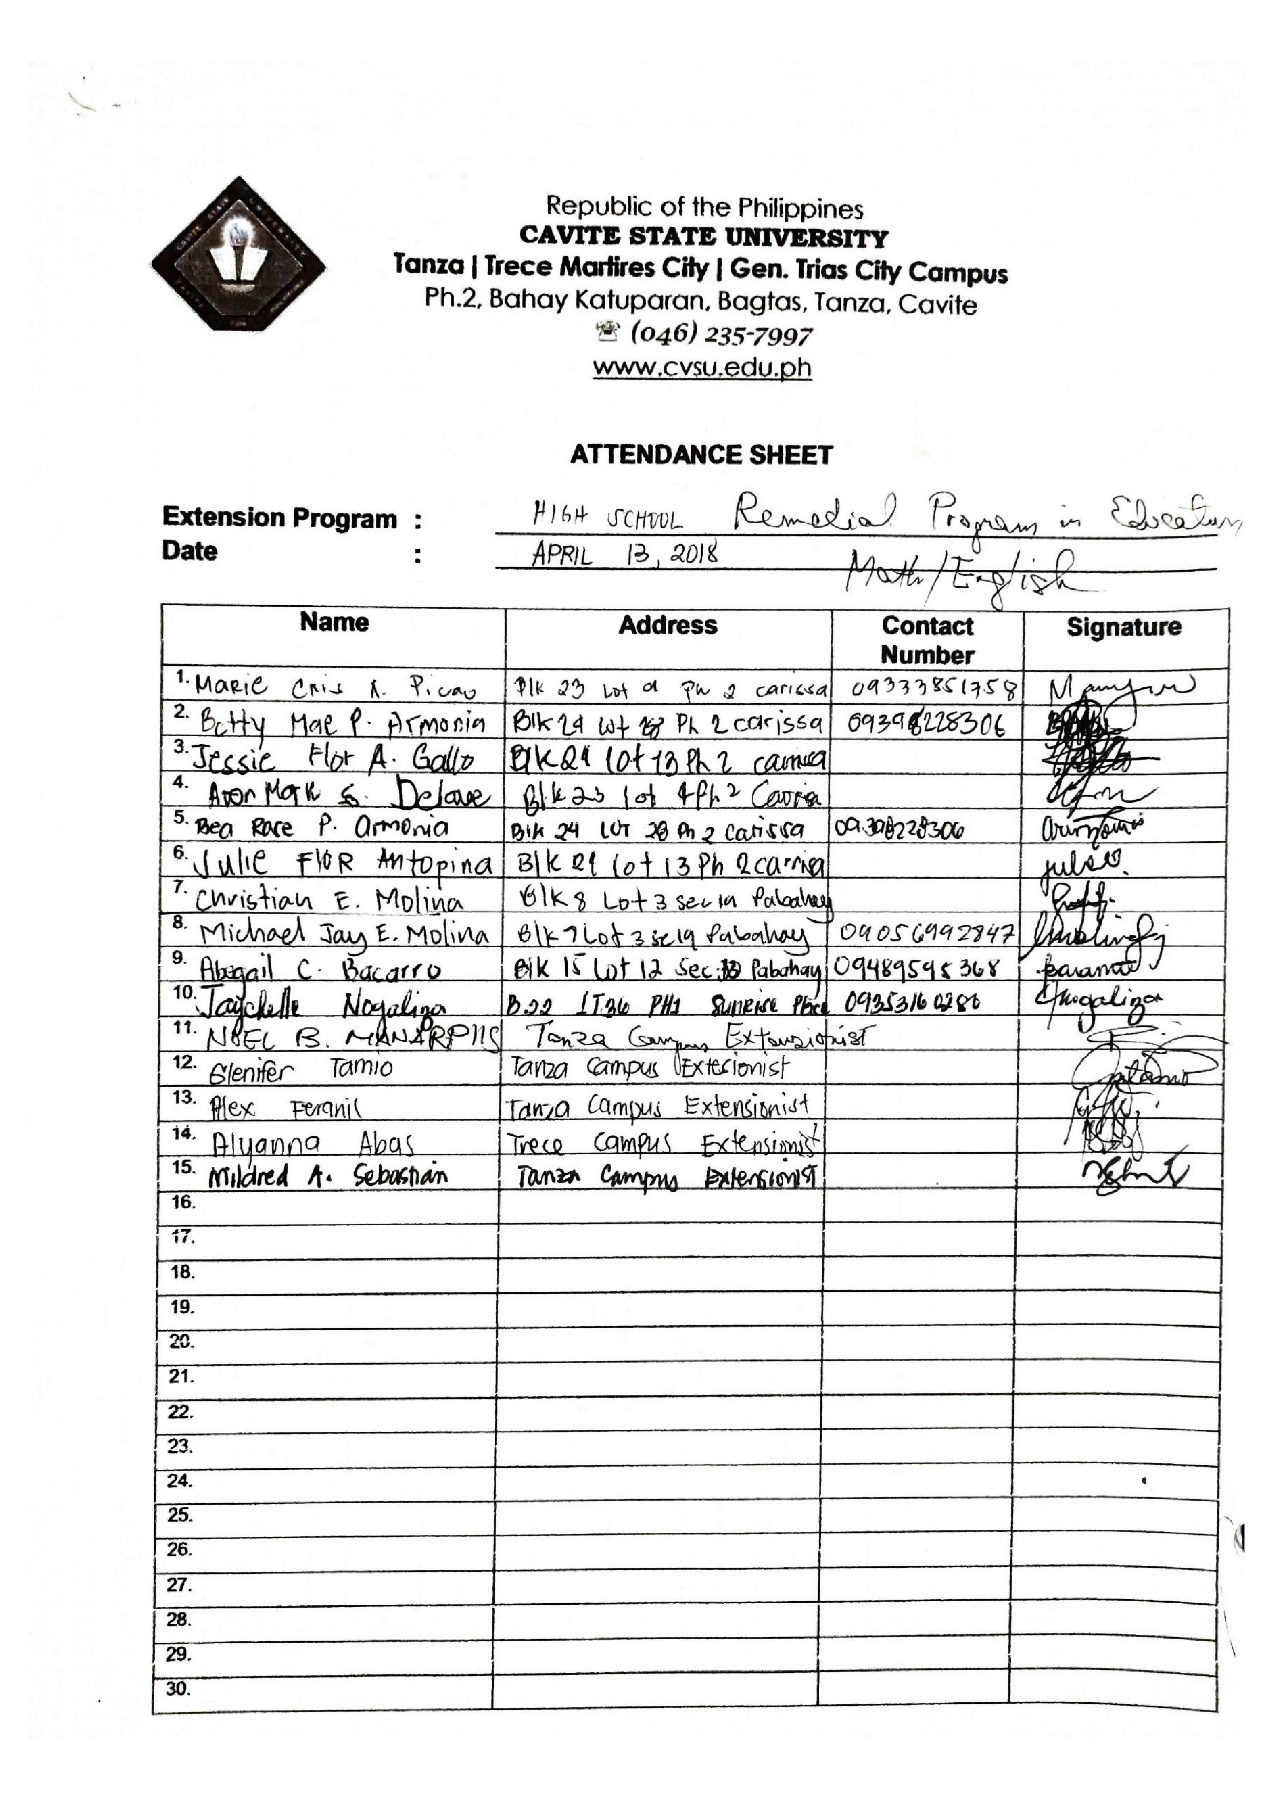 Republic of the Philippines
CAVITE STATE UNIVERSITY
Tanza | Trece Martires City | Gen. Trias City Campus
Ph.2, Bahay Katuparan, Bagtas, Tanza, Cavite
☏ (046) 235-7997
www.cvsu.edu.ph
ATTENDANCE SHEET
Extension Program : HIGH SCHOOL Remedial Program in Education
Date : APRIL 13, 2018 Math/English
Name Address Contact Number Signature
1. Marie Cris A. Picao Blk 23 Lot 9 Ph 2 carissa 09333851758
2. Betty Mae P. Armonia Blk 24 Lot 28 Ph 2 carissa 09398228306
3. Jessie Flor A. Gallo Blk 24 lot 13 Ph 2
4. Mark S. Blk 23 lot 4 Ph 2
5. Bea Rose P. Armonia Blk 24 Lot 28 Ph 2 Carissa 09398228306
6. Julie FlOR Antopina Blk 24 lot 13 Ph 2
7. Christian E. Molina Blk 8 Lot 3 sec 19 Pabahay
8. Michael Jay E. Molina Blk 7 Lot 3 sc 19 Pabahay 09056992847
9. Abegail C. Bacarro Blk 15 Lot 12 Sec. 13 Pabahay 09489595368
10. Jaychelle Nogaliza B.22 LT36 PH1 Sunrise Place 09353160286
11. NOEL B. MANARPIIS Tanza Campus Extensionist
12. Glenifer Tamio Tanza Campus Extecionist
13. Alex Feranil Tanza Campus Extensionist
14. Alyanna Abas Trece Campus Extensionist
15. Mildred A. Sebastian Tanza Campus Extensionist
16.
17.
18.
19.
20.
21.
22.
23.
24.
25.
26.
27.
28.
29.
30.